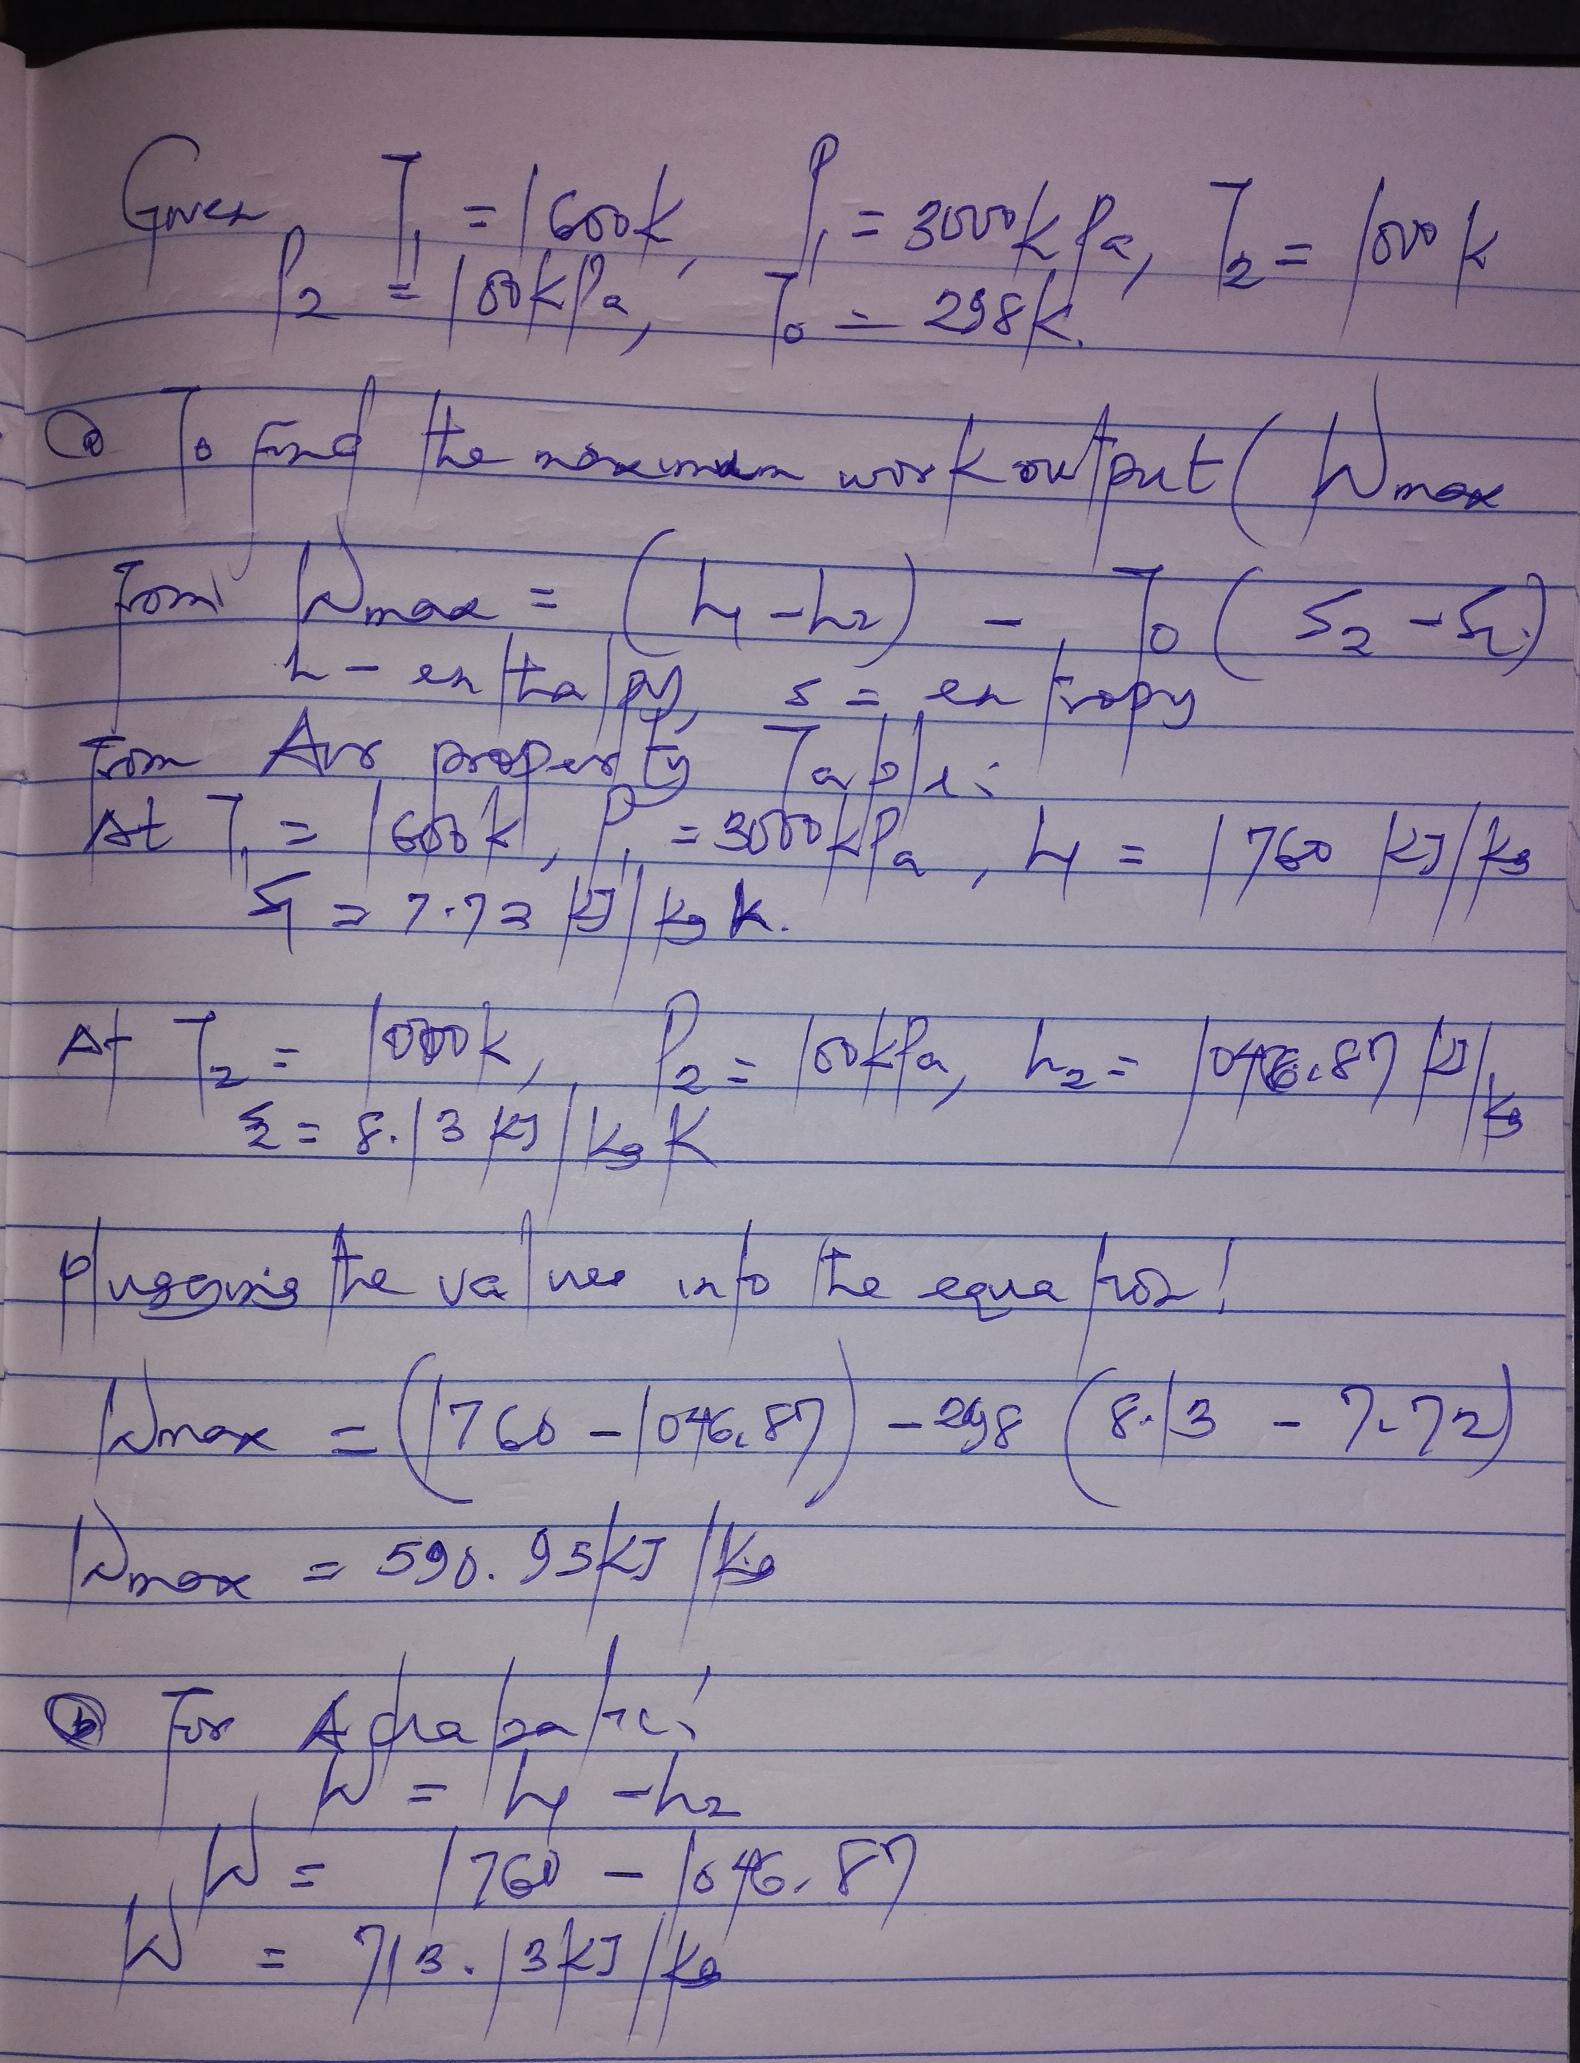 Given T₁ = 1600k, P₁ = 3000kPa, T₂ = 1000k
P₂ = 100kPa, T₀ = 298k.
ⓐ To find the maximum work output (Wmax
From Wmax = (h₁ - h₂) - T₀ (S₂ - S₁)
h - enthalpy, s = entropy
From Air property Table:
At T₁ = 1600k, P₁ = 3000kPa, h₁ = 1760 kJ/kg
S₁ = 7.72 kJ/kg k.
At T₂ = 1000k, P₂ = 100kPa, h₂ = 1046.87 kJ/kg
S₂ = 8.13 kJ/kg K
plugging the values into the equation!
Wmax = (1760 - 1046.87) - 298 (8.13 - 7.72)
Wmax = 590.95kJ/kg
ⓑ For Adiabatic:
W = h₁ - h₂
W = 1760 - 1046.87
W = 713.13kJ/kg